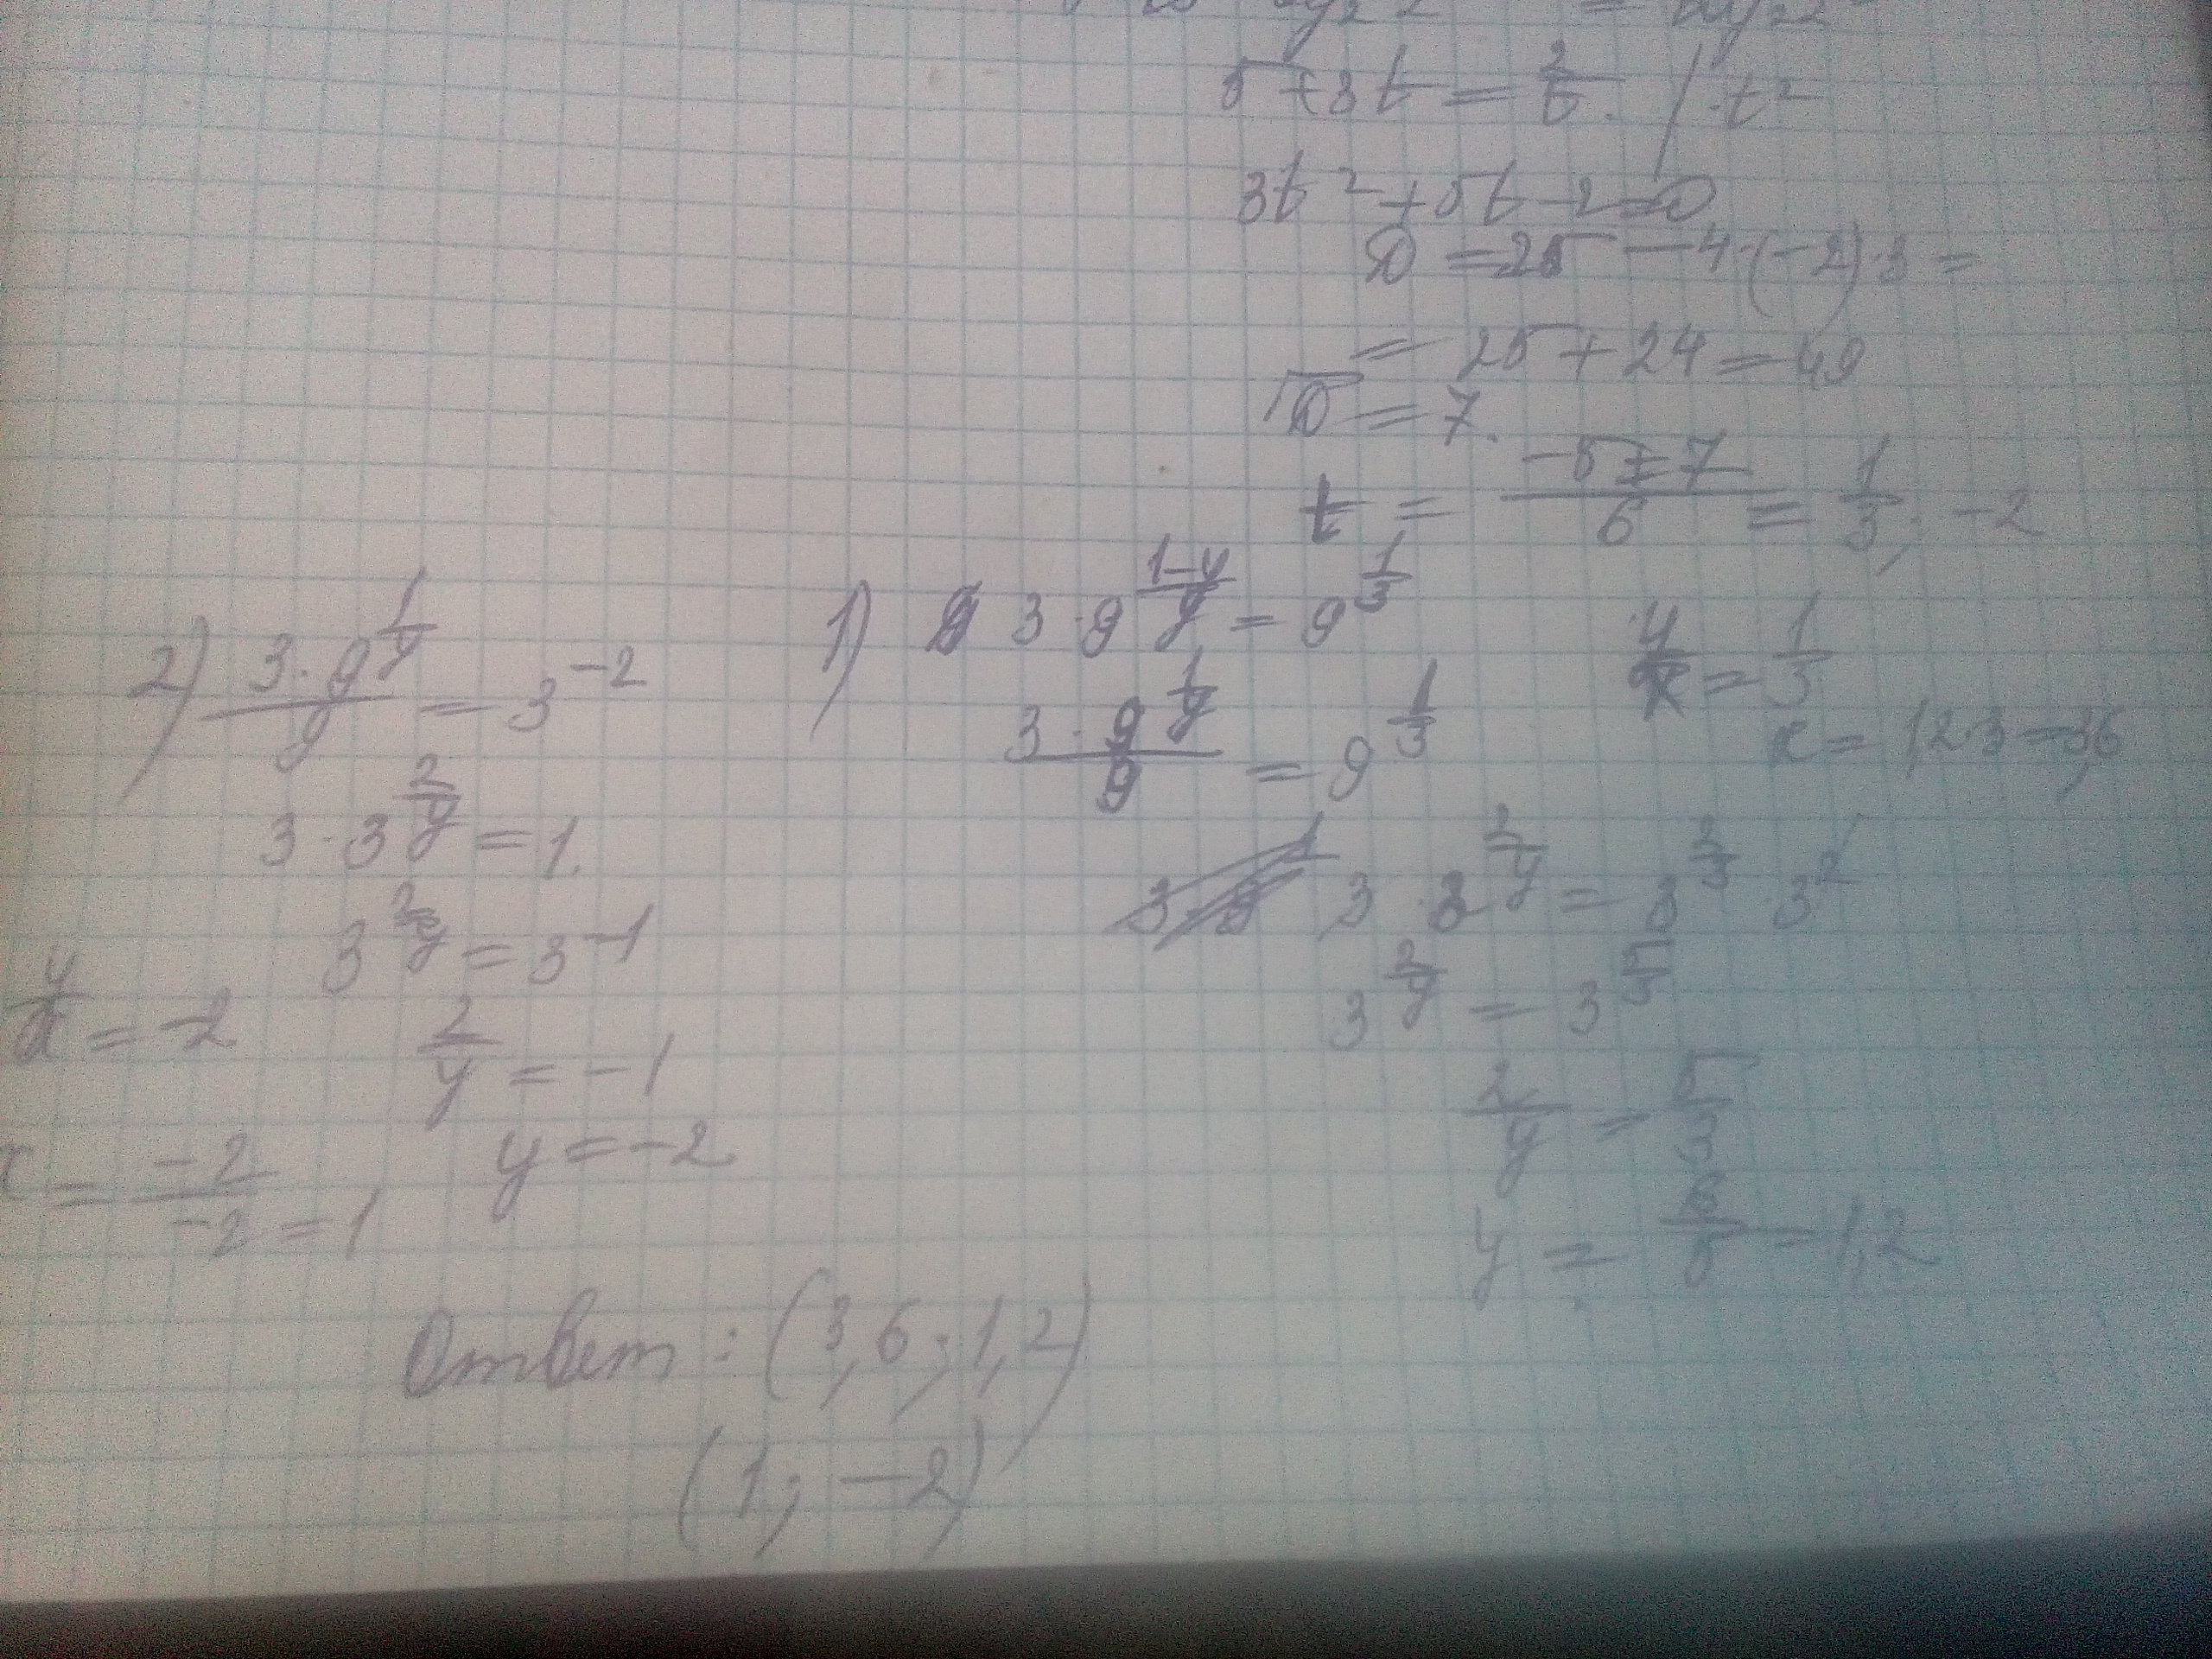 5+3t = 2/t | ·t²
3t² + 5t - 2 = 0
D = 25 - 4·(-2)·3 =
= 25 + 24 = 49
√D = 7.
t = (-5±7)/6 = 1/3; -2
1) 3·9^((1-y)/y) = 9^(1/3)
y/x = 1/3
(3·9^(1/y))/9 = 9^(1/3)
x = 1,2·3 = 3,6
3·3^(2/y) = 3^(2/3)·3²
3^(2/y) = 3^(5/3)
2/y = 5/3
y = 6/5 = 1,2
2) (3·9^(1/y))/9 = 3^(-2)
3·3^(2/y) = 1.
3^(2/y) = 3^(-1)
y/x = -2
2/y = -1
y = -2
x = -2/-2 = 1
Ответ: (3,6; 1,2)
(1; -2)